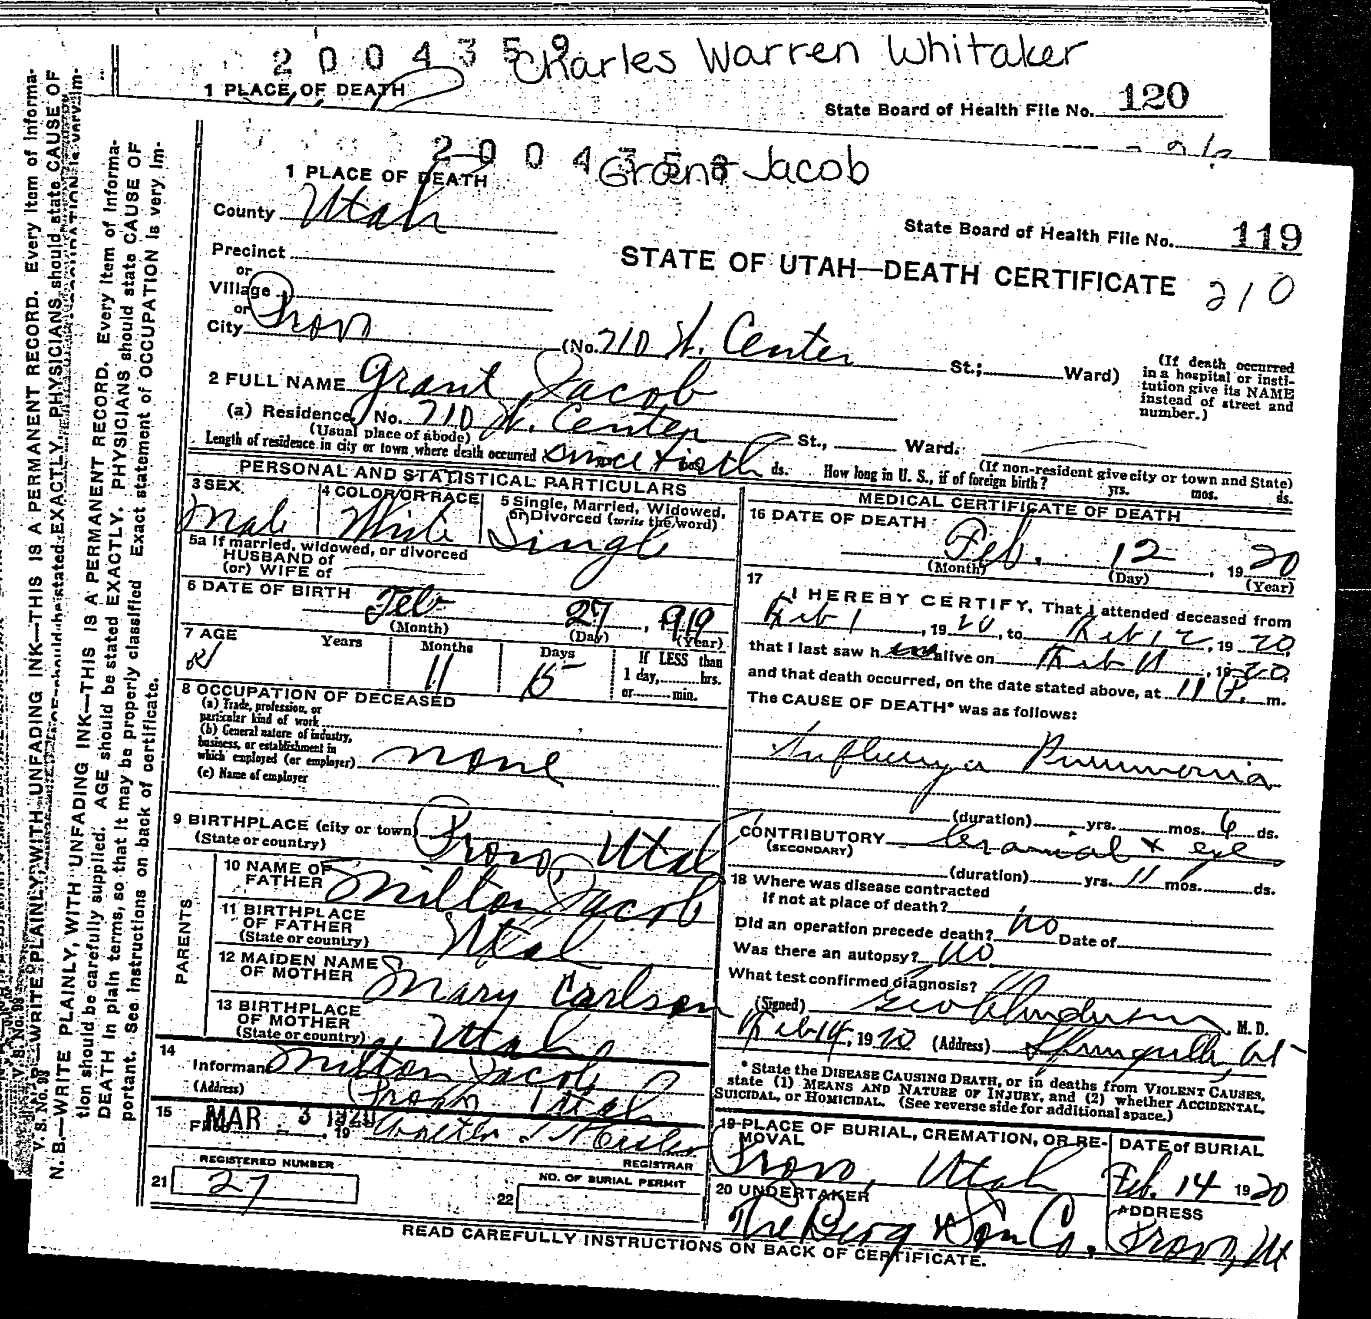 2004359 Charles Warren Whitaker
1 PLACE OF DEATH
State Board of Health File No. 120
2004358 Grant Jacob
1 PLACE OF DEATH
County Utah
State Board of Health File No. 119
Precinct
STATE OF UTAH—DEATH CERTIFICATE 210
or
Village
or
City Provo
(No. 710 W. Center St.; Ward)
(If death occurred in a hospital or insti-
tution give its NAME instead of street and number.)
2 FULL NAME Grant Jacob
(a) Residence, No. 710 W. Center St., Ward.
(Usual place of abode)
(If non-resident give city or town and State)
Length of residence in city or town where death occurred Since birth ds. How long in U. S., if of foreign birth? yrs. mos. ds.
PERSONAL AND STATISTICAL PARTICULARS
3 SEX Male
4 COLOR OR RACE White
5 Single, Married, Widowed, or Divorced (write the word) Single
5a If married, widowed, or divorced
HUSBAND of
(or) WIFE of
6 DATE OF BIRTH Feb 27, 1919
(Month) (Day) (Year)
7 AGE Years Months 11 Days 15
If LESS than 1 day, hrs. or min.
8 OCCUPATION OF DECEASED
(a) Trade, profession, or particular kind of work
(b) General nature of industry, business, or establishment in which employed (or employer) none
(c) Name of employer
9 BIRTHPLACE (city or town) Provo, Utah
(State or country)
PARENTS
10 NAME OF FATHER Milton Jacob
11 BIRTHPLACE OF FATHER Utah
(State or country)
12 MAIDEN NAME OF MOTHER Mary Carlson
13 BIRTHPLACE OF MOTHER Utah
(State or country)
14
Informant Milton Jacob
(Address) Provo Utah
15 Filed MAR 3 1920, 19
REGISTRAR
REGISTERED NUMBER
21 27
NO. OF BURIAL PERMIT
22
MEDICAL CERTIFICATE OF DEATH
16 DATE OF DEATH Feb. 12, 1920
(Month) (Day) (Year)
17 I HEREBY CERTIFY, That I attended deceased from
Feb 1, 1920, to Feb 12, 1920
that I last saw him alive on Feb 11, 1920
and that death occurred, on the date stated above, at 11 P. m.
The CAUSE OF DEATH* was as follows:
Influenza Pneumonia
(duration) yrs. mos. 6 ds.
CONTRIBUTORY & eye
(SECONDARY)
(duration) yrs. 11 mos. ds.
18 Where was disease contracted
if not at place of death?
Did an operation precede death? No Date of
Was there an autopsy? No
What test confirmed diagnosis?
(Signed) Geo Anderson, M. D.
Feb 14, 1920 (Address) Springville, Ut
* State the DISEASE CAUSING DEATH, or in deaths from VIOLENT CAUSES,
state (1) MEANS AND NATURE OF INJURY, and (2) whether ACCIDENTAL,
SUICIDAL, or HOMICIDAL. (See reverse side for additional space.)
19 PLACE OF BURIAL, CREMATION, OR RE-
MOVAL
Provo, Utah
DATE of BURIAL
Feb. 14 1920
20 UNDERTAKER
The Berg & Son Co.
ADDRESS
Provo, Ut
READ CAREFULLY INSTRUCTIONS ON BACK OF CERTIFICATE.
V. S. No. 98
N. B.—WRITE PLAINLY, WITH UNFADING INK—THIS IS A PERMANENT RECORD. Every item of informa-
tion should be carefully supplied. AGE should be stated EXACTLY. PHYSICIANS should state CAUSE OF
DEATH in plain terms, so that it may be properly classified. Exact statement of OCCUPATION is very im-
portant. See instructions on back of certificate.